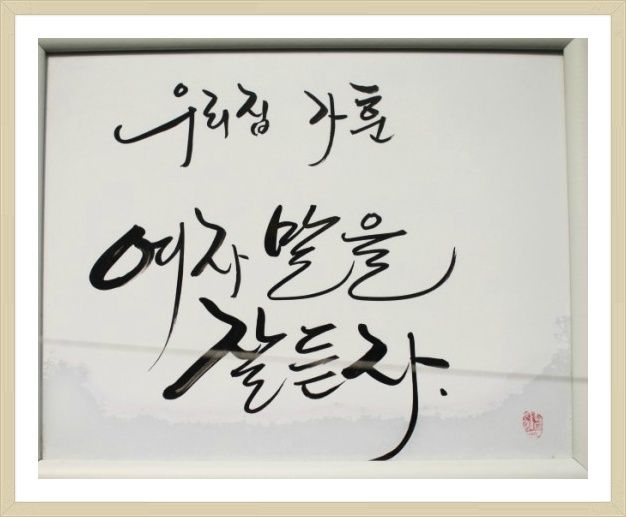 우리집 가훈
여자 말을
잘듣자.